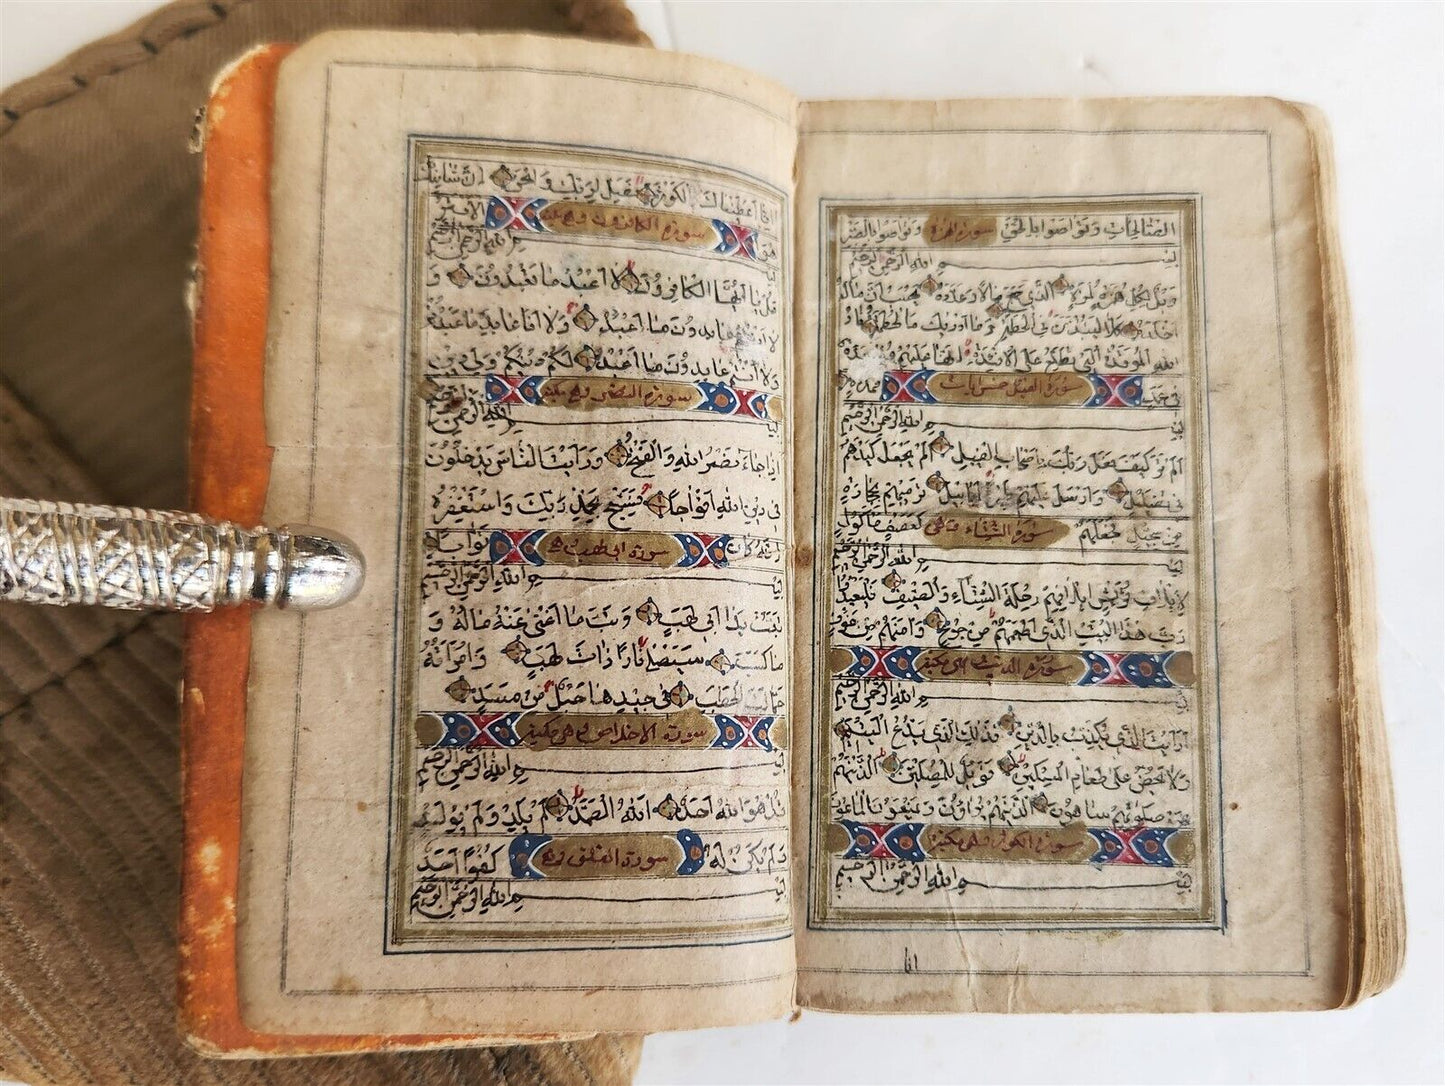 الصالحات وتواصوا بالحق سورة الهمزة وتواصوا بالصبر
بسم الله الرحمن الرحيم
ويل لكل همزة لمزة الذي جمع مالا وعدده يحسب ان ماله
اخلده كلا لينبذن في الحطمة وما ادريك ما الحطمة نار
الله الموقدة التي تطلع على الافئدة انها عليهم مؤصدة
في عمد سورة الفيل خمس ايات ممددة
بسم الله الرحمن الرحيم
الم تر كيف فعل ربك باصحاب الفيل الم يجعل كيدهم
في تضليل وارسل عليهم طيرا ابابيل ترميهم بحجارة
من سجيل فجعلهم سورة الشتاء كعصف ماكول
بسم الله الرحمن الرحيم
لايلاف قريش ايلافهم رحلة الشتاء والصيف فليعبدوا
رب هذا البيت الذي اطعمهم من جوع وامنهم من خوف
سورة الدين مكية
بسم الله الرحمن الرحيم
ارايت الذي يكذب بالدين فذلك الذي يدع اليتيم
ولا يحض على طعام المسكين فويل للمصلين الذينهم
عن صلوتهم ساهون الذينهم يراؤن ويمنعون الماعون
سورة الكوثر مكية
بسم الله الرحمن الرحيم
انا اعطيناك الكوثر فصل لربك وانحر ان شانئك
هو سورة الكافرون الابتر
بسم الله الرحمن الرحيم
قل يا ايها الكافرون لا اعبد ما تعبدون و
لا انتم عابدون ما اعبد ولا انا عابد ما عبدتم
ولا انتم عابدون ما اعبد لكم دينكم ولي دين
سورة النصر
بسم الله الرحمن الرحيم
اذا جاء نصر الله والفتح ورايت الناس يدخلون
في دين الله افواجا فسبح بحمد ربك واستغفره
انه كان سورة ابي لهب توابا
بسم الله الرحمن الرحيم
تبت يدا ابي لهب وتب ما اغنى عنه ماله و
ما كسب سيصلى نارا ذات لهب وامراته
حمالت الحطب في جيدها حبل من مسد
سورة الاخلاص هي مكية
بسم الله الرحمن الرحيم
قل هو الله احد الله الصمد لم يلد ولم يولد
ولم يكن له سورة الفلق كفوا احد
بسم الله الرحمن الرحيم